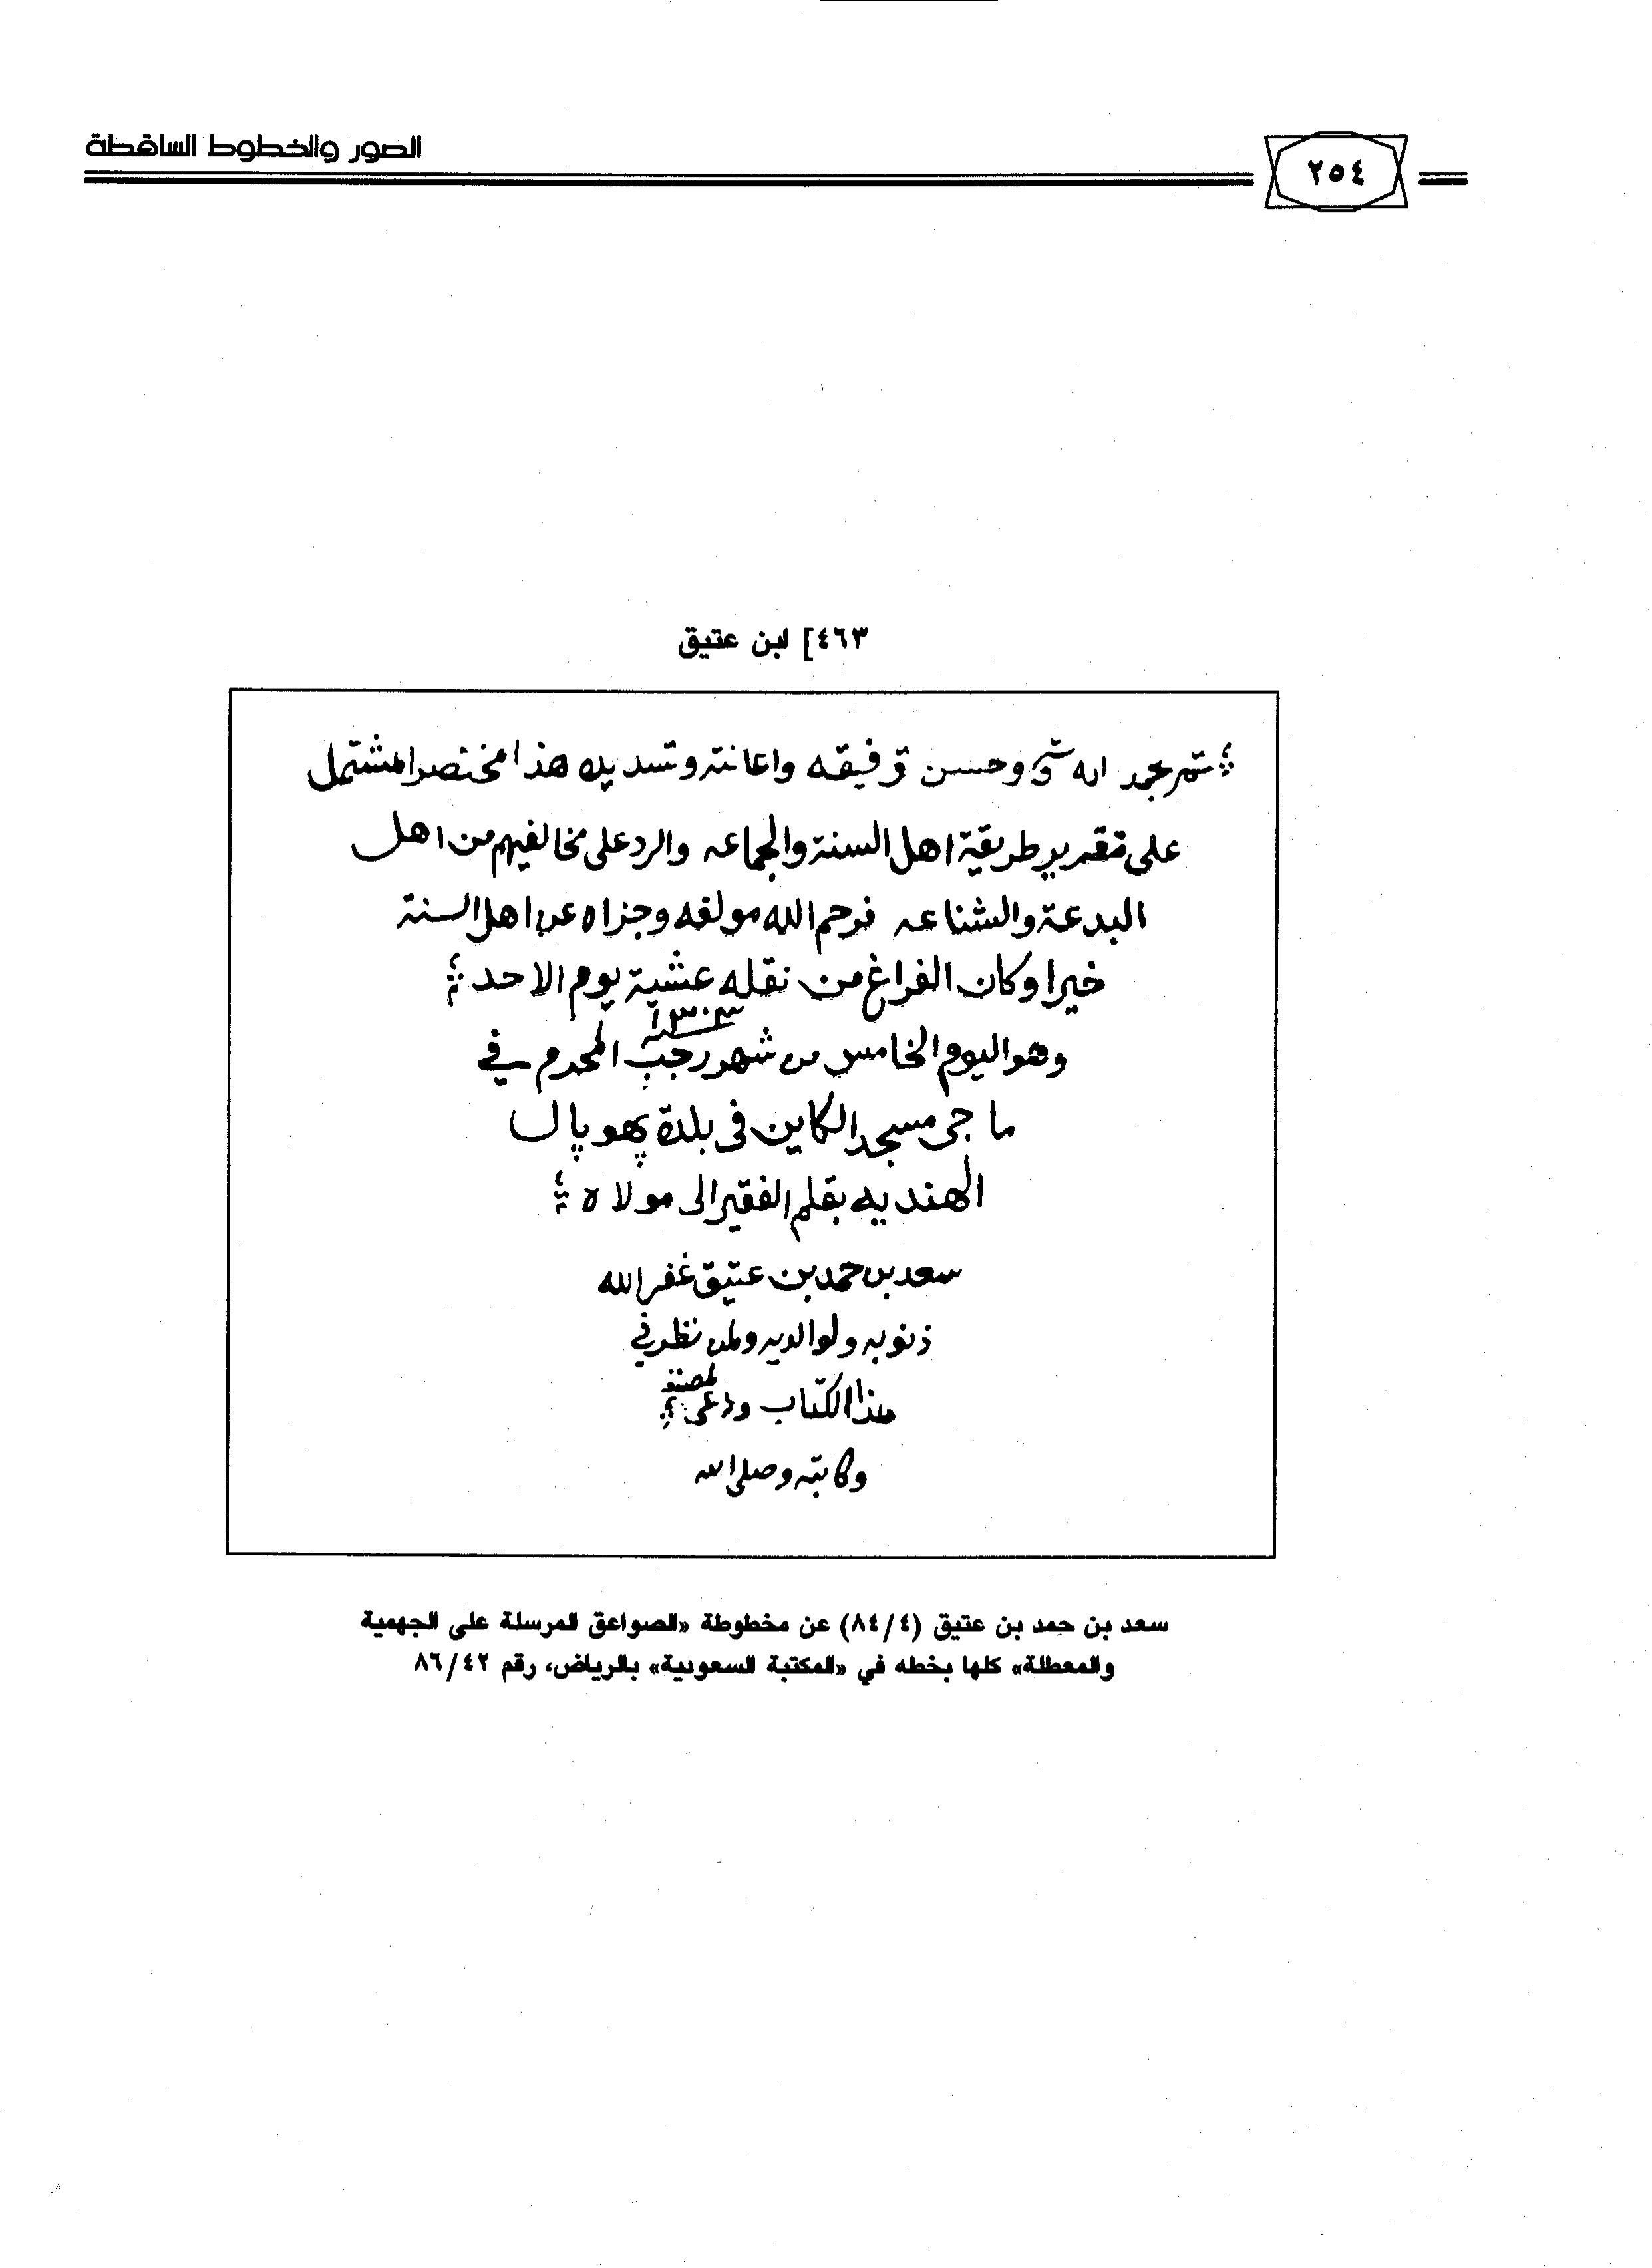 الصور والخطوط الساقطة
٢٥٤
٤٦٣] ابن عتيق
تم بحمد الله تعالى وحسن توفيقه واعانته وتسديده هذا مختصر المشتمل
على تقرير طريقة اهل السنة والجماعه والرد على مخالفيهم من اهل
البدعة والشناعه فرحم الله مولفه وجزاه عن اهل السنة
خيرا وكان الفراغ من نقله عشية يوم الاحد
١٣٠٣
وهو اليوم الخامس من شهر رجب المحرم في
ماجى مسجد الكاين في بلدة بهوپال
الهنديه بقلم الفقير الى مولاه
سعد بن حمد بن عتيق غفر الله
ذنوبه ولوالديه ولمن نظر في
هذا الكتاب ودعى لمصنفه
وكاتبه وصلى الله
سعد بن حمد بن عتيق (٨٤/٤) عن مخطوطة «الصواعق المرسلة على الجهمية
والمعطلة» كلها بخطه في «المكتبة السعودية» بالرياض، رقم ٨٦/٤٢